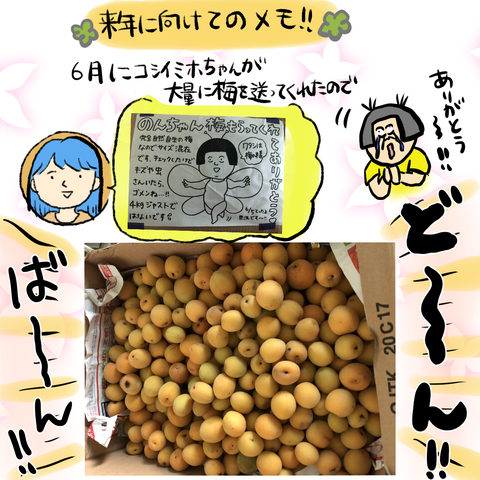 来年に向けてのメモ!!
6月にコシイミホちゃんが
大量に梅を送ってくれたので
ありがとう〜!!
のんちゃん梅もらってくれ
てありがとう♡
完全自然自生の梅
なのでサイズ混在
です。チェックしたけど
キズや虫
さんいたら、
ゴメンね…!!
4kgジャストで
はないです
ワシは
梅の精
ど〜〜ん!!
ばーーん!!
OJTK 20C17